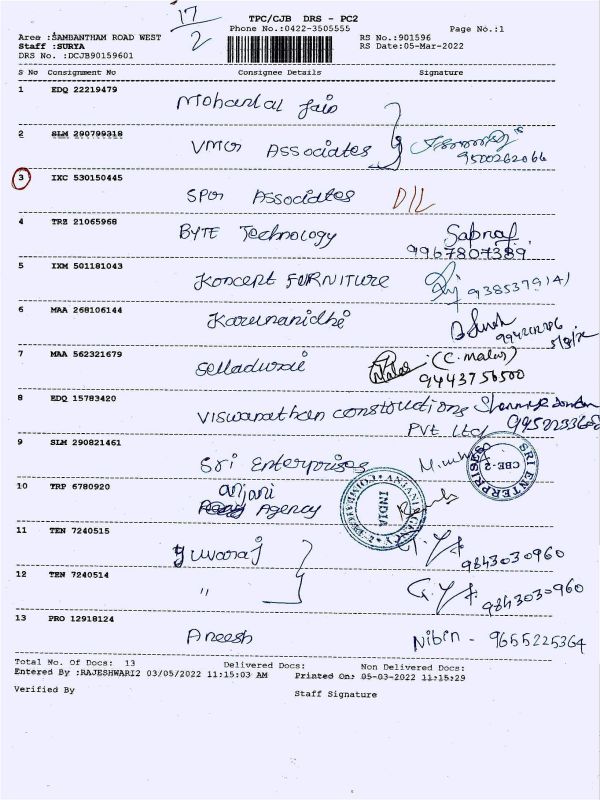 17
2
TPC/CJB DRS - PC2
Phone No.:0422-3505555 Page No.:1
Area :SAMBANTHAM ROAD WEST RS No.:901596
Staff :SURYA RS Date:05-Mar-2022
DRS No. :DCJB90159601
S No Consignment No Consignee Details Signature
1 EDQ 22219479 Mohanlal Jain
2 SLM 290799318 VMG Associates 9500262066
3 IXC 530150445 SPG Associates D/L
4 TRZ 21065968 BYTE Technology Sapna 9967807389
5 IXM 501181043 Koncept FURNITURE 9385379141
6 MAA 268106144 Karunanidhi
7 MAA 562321679 Selladurai (C. malar) 9443756500
8 EDQ 15783420 Viswanathan constructions PVT Ltd
9 SLM 290821461 Sri Enterprises SRI ENTERPRISES CBE-2
10 TRP 6780920 anjani Agency INDIA
11 TEN 7240515 yuvaraj 9843030960
12 TEN 7240514 " 9843030960
13 PRO 12918124 Aneesh Nibin - 9655225364
Total No. Of Docs: 13 Delivered Docs: Non Delivered Docs:
Entered By :RAJESHWARI2 03/05/2022 11:15:03 AM Printed On: 05-03-2022 11:15:29
Verified By Staff Signature